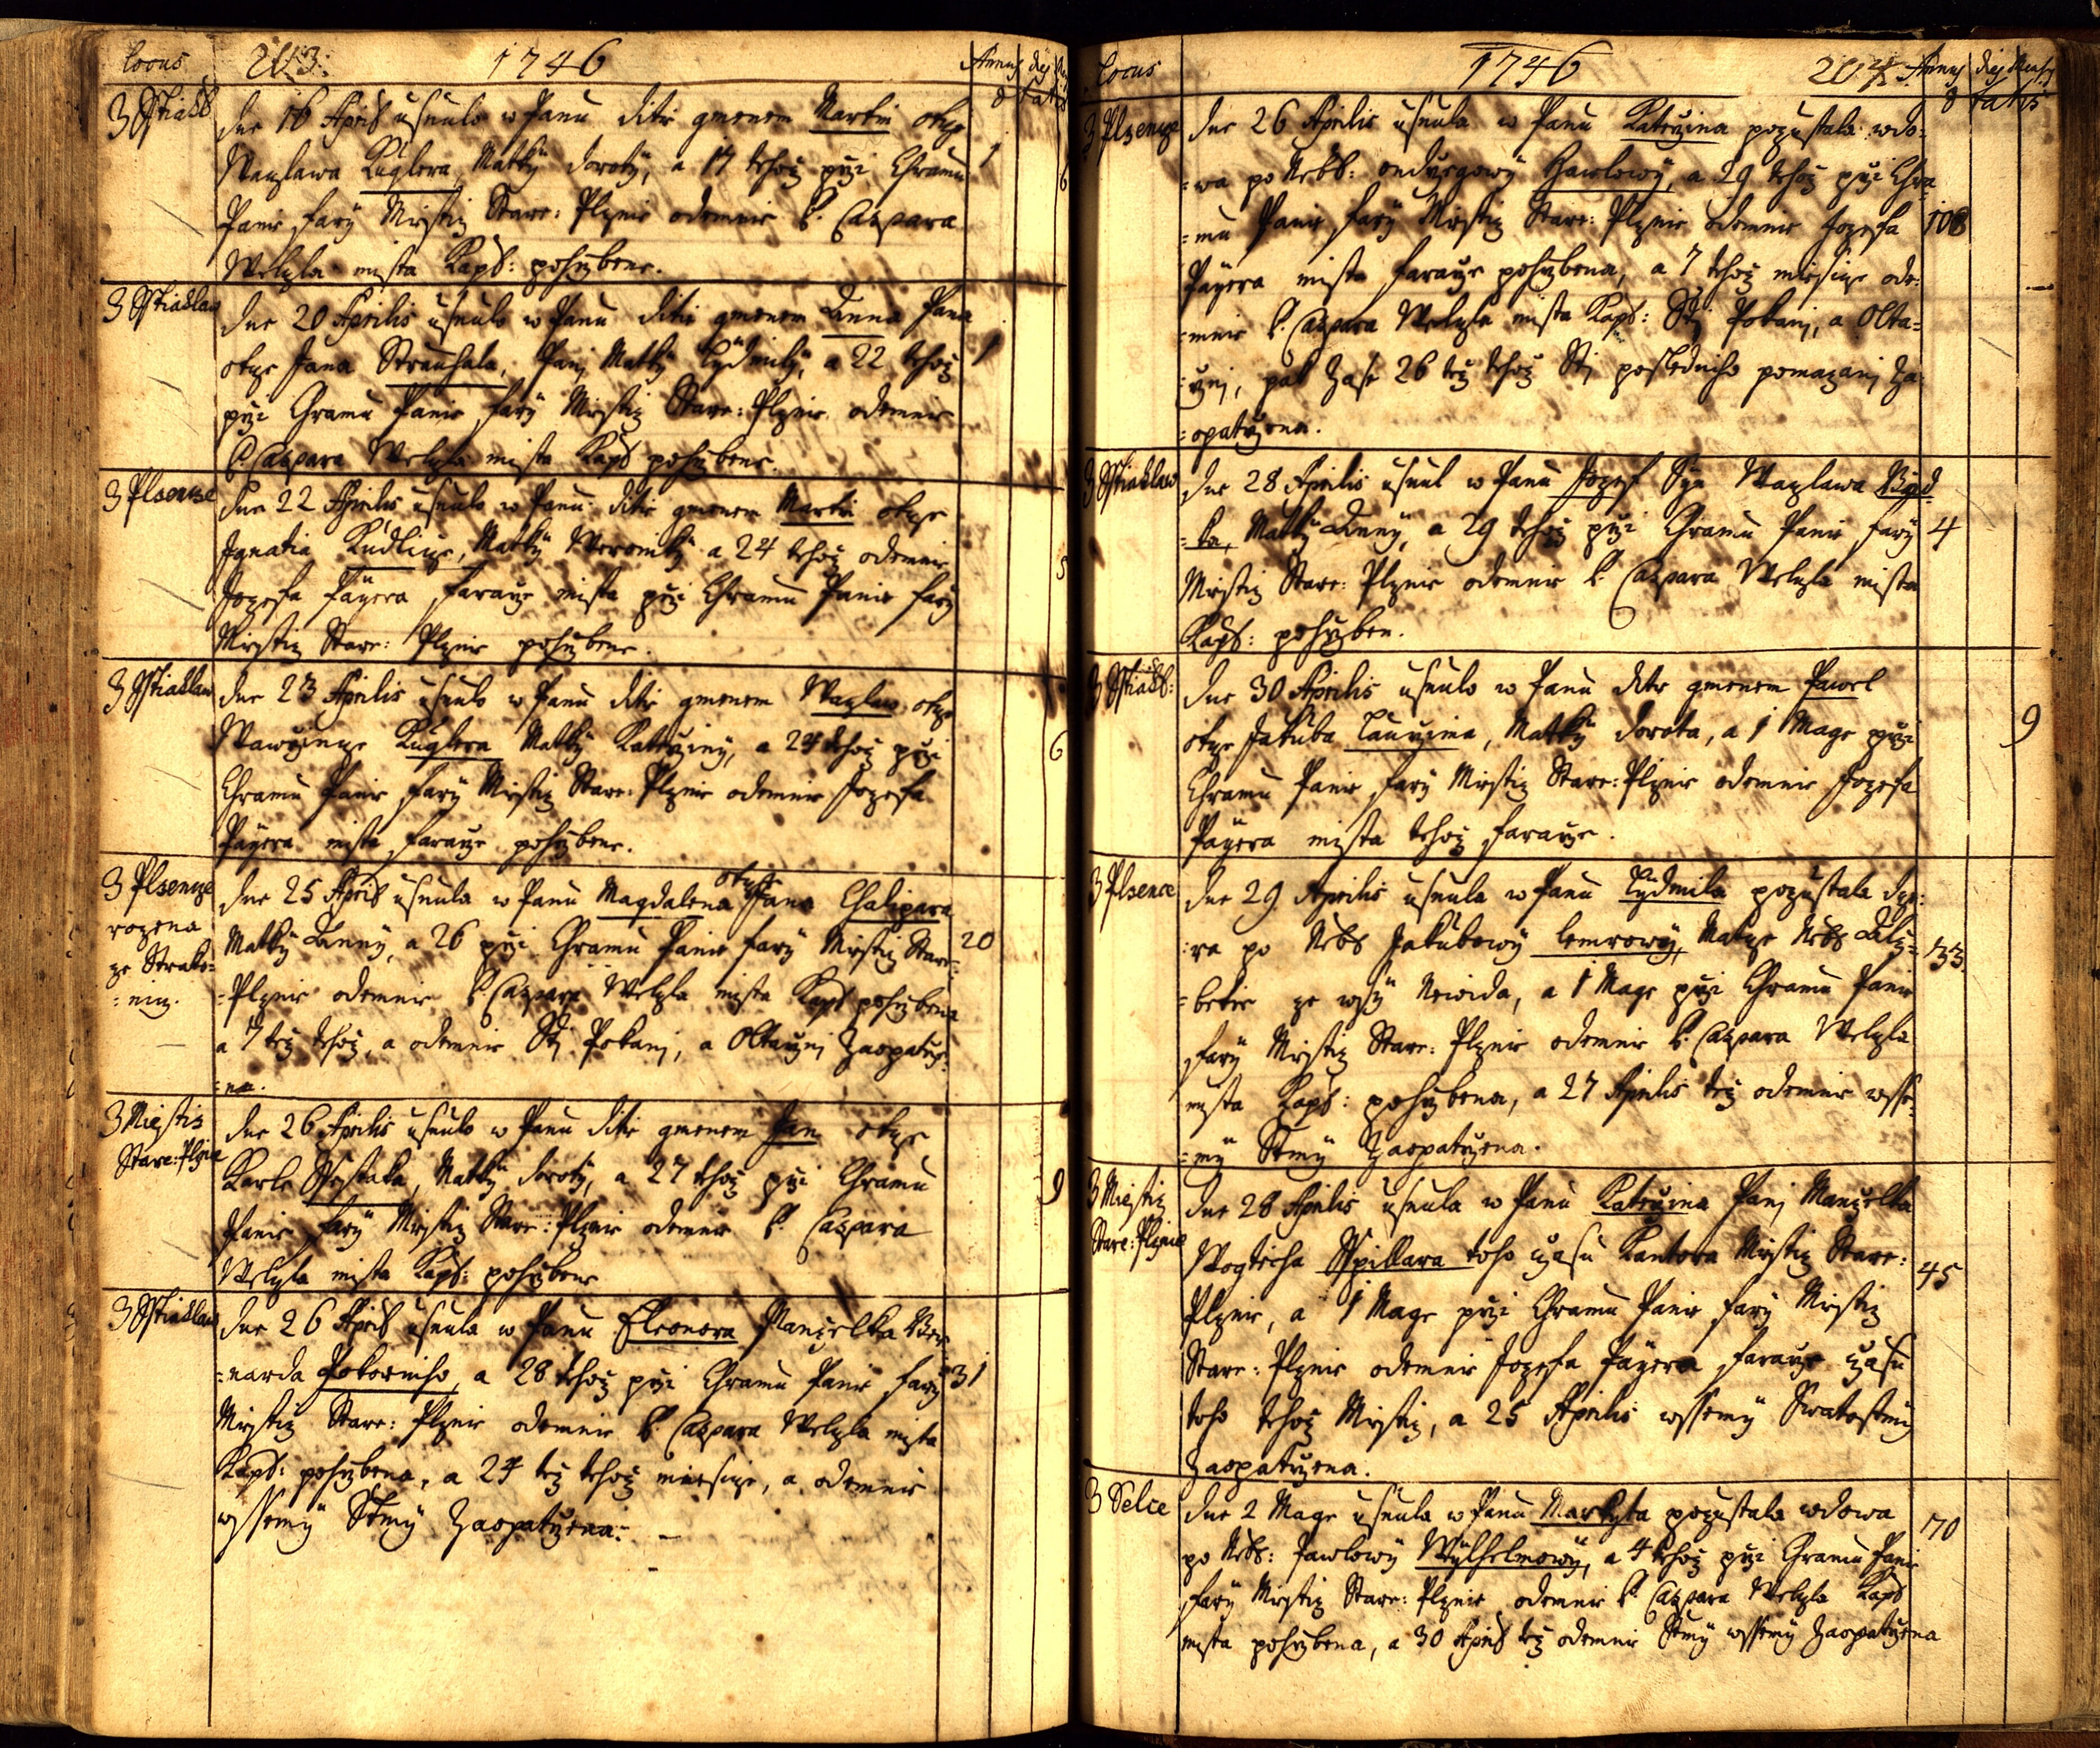 Locus 203: 1746 Annus dies Mens
ætatis
Z Sstiahl:
Dne 16 April: usnulo w Panu dite gmenem Martin otcze
Waczlawa Kuglera, Matky Doroty, a 17 tehoz przi Chramu 1
Panie fary Miestis Stare: Plznie odemnie P. Caspara
Welczla mista Kapl: pohrzbene.
Z Sstiahlaw
Dne 20 Aprilis usnulo w Panu dite gmenem Anna Pana
otcze Jana Strauhala, Pani Matky Lydmily, a 22 tehoz 1
przi Chramu Panie fary Miestis Stare: Plznie odemnie
P. Caspara Welczla mista Kapl pohrzbene.
Z Plzencze
Dne 22 Aprilis usnulo w Panu dite gmenem Martin otcze
Ignatia Kudlicze, Matky Weroniky a 24 tehoz odemnie 5
Jozefa Payera fararze mista przi Chramu Panie fary
Miestis Stare: Plznie pohrzbene.
Z Sstiahlaw
Dne 23 Aprilis usnulo w Panu dite gmenem Waczlaw otcze
Wawrzincze Kuglera Matky Katerziny, a 24 tehoz przi 6
Chramu Panie fary Miestis Stare: Plznie odemnie Jozefa
Payera mista fararze pohrzbene.
Z Plzencze
rozena
ze Strako=
=nicz.
Dne 25 April usnula w Panu Magdalena otcze Jana Chalipara
Matky Anny, a 26 przi Chramu Panie fary Miestis Stare: 20
=Plznie odemnie P. Caspara Welczla mista Kapl pohrzbena
a 7 tez tehoz, a odemnie Sti Pokani, a Oltarzni Zaopatrze=
=na.
Z Miestis
Stare: Plznie
Dne 26 Aprilis usnulo w Panu dite gmenem Jan otcze
Karle Ssestaka, Matky Doroty, a 27 tehoz przi Chramu 9
Panie fary Miestis Stare: Plznie odemnie P. Caspara
Welczla mista Kapl: pohrzbene
Z Sstiahlaw
Dne 26 April usnula w Panu Eleonora Manzelka Ber=
=narda Pokorniho, a 28 tehoz przi Chramu Panie fary 31
Miestis Stare: Plznie odemnie P. Caspara Welczla mista
Kapl: pohrzbena, a 24 tez tehoz miesicze, a odemnie
wssemy Stmy Zaopatrzena:
Locus 1746 204. Annus dies Mensis
ætatis
Z Plzencze
Dne 26 Aprilis usnula w Panu Katerzina pozustala wdo=
=wa po Nebo: Ondrzegowy Hawlowy, a 29 tehoz przi Chra
=mu Panie fary Miestis Stare: Plznie odemnie Jozefa 100
Payera mista fararze pohrzbena, a 7 tehoz miesicze ode=
=mnie P. Caspara Welczla mista Kapl: Sti Pokani, a Olta=
=rzni, pak Zase 26 tez tehoz Sti posledniho pomazani Za=
=opatrzena.
Z Sstiahlaw
Dne 28 Aprilis usnul w Panu Jozef Syn Waczlawa
=ka, Matky Anny, a 29 tehoz przi Chramu Panie fary 4
Miestis Stare: Plznie odemnie P. Caspara Welczla mista
Kapl: pohrzben.
Z Sstiahl:
Dne 30 Aprilis usnulo w Panu dite gmenem Pawel
otcze Jakuba Laurzina, Matky Dorota, a 1 Mage przi 9
Chramu Panie fary Miestis Stare: Plznie odemnie Jozefa
Payera mista tehoz fararze.
Z Plsence
Dne 29 Aprilis usnula w Panu Lydmila pozustala dcze=
=ra po Nebo Jakubowy Lemrowy, Matcze Nebo Alz= 33.
=betie ze wsy Newida, a 1 Mage przi Chramu Panie
fary Miestis Stare: Plznie odemnie P. Caspara Welczla
mista Kapl: pohrzbena, a 27 Aprilis tez odemnie wsse=
=my Stmy Zaopatrzena.
Z Miestis
Stare: Plznie
Dne 28 Aprilis usnula w Panu Katerzina Pani Manzelka
Wogticha Sspillara toho czasu Kantora Miestis Stare: 45
Plznie, a 1 Mage przi Chramu Panie fary Miestis
Stare: Plznie odemnie Jozefa Payera fararze czasu
toho tehoz Miestis, a 25 Aprilis wssemy Swatostmi
Zaopatrzena.
Z Selce
Dne 2 Mage usnula w Panu Markyta pozustala wdowa 70
po Nebo: Pawlowy Wylhelmowy, a 4 tehoz przi Chramu Panie
fary Miestis Stare: Plznie odemnie P. Caspara Welczla Kapl
mista pohrzbena, a 30 April tez odemnie Stmy wssemy Zaopatrzena